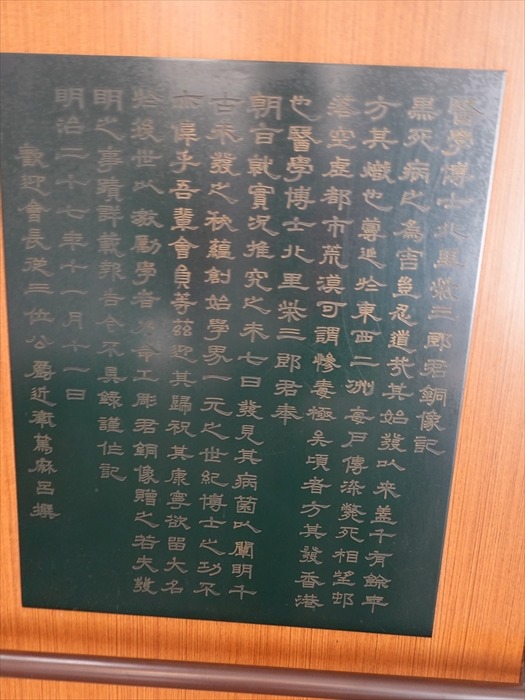 醫學博士北里柴三郎君銅像記
黒死病之為害豈忍道哉其始發以來蓋千有餘年
方其熾也蔓延於東西二洲每戶傳染斃死相望邨
落空虛都市荒漠可謂慘毒極矣頃者方其發香港
也醫學博士北里柴三郎君奉
朝命就實況推究之未七日發見其病菌以闡明千
古未發之秘蘊創始學界一元之世紀博士之功不
亦偉乎吾輩會員等茲迎其歸祝其康寧欲留大名
於後世以救勵學者乃命工彫君銅像贈之若夫發
明之事蹟詳載報告今不具錄謹作記
明治二十七年十一月十一日
歡迎會長從三位公爵近衞篤麻呂撰